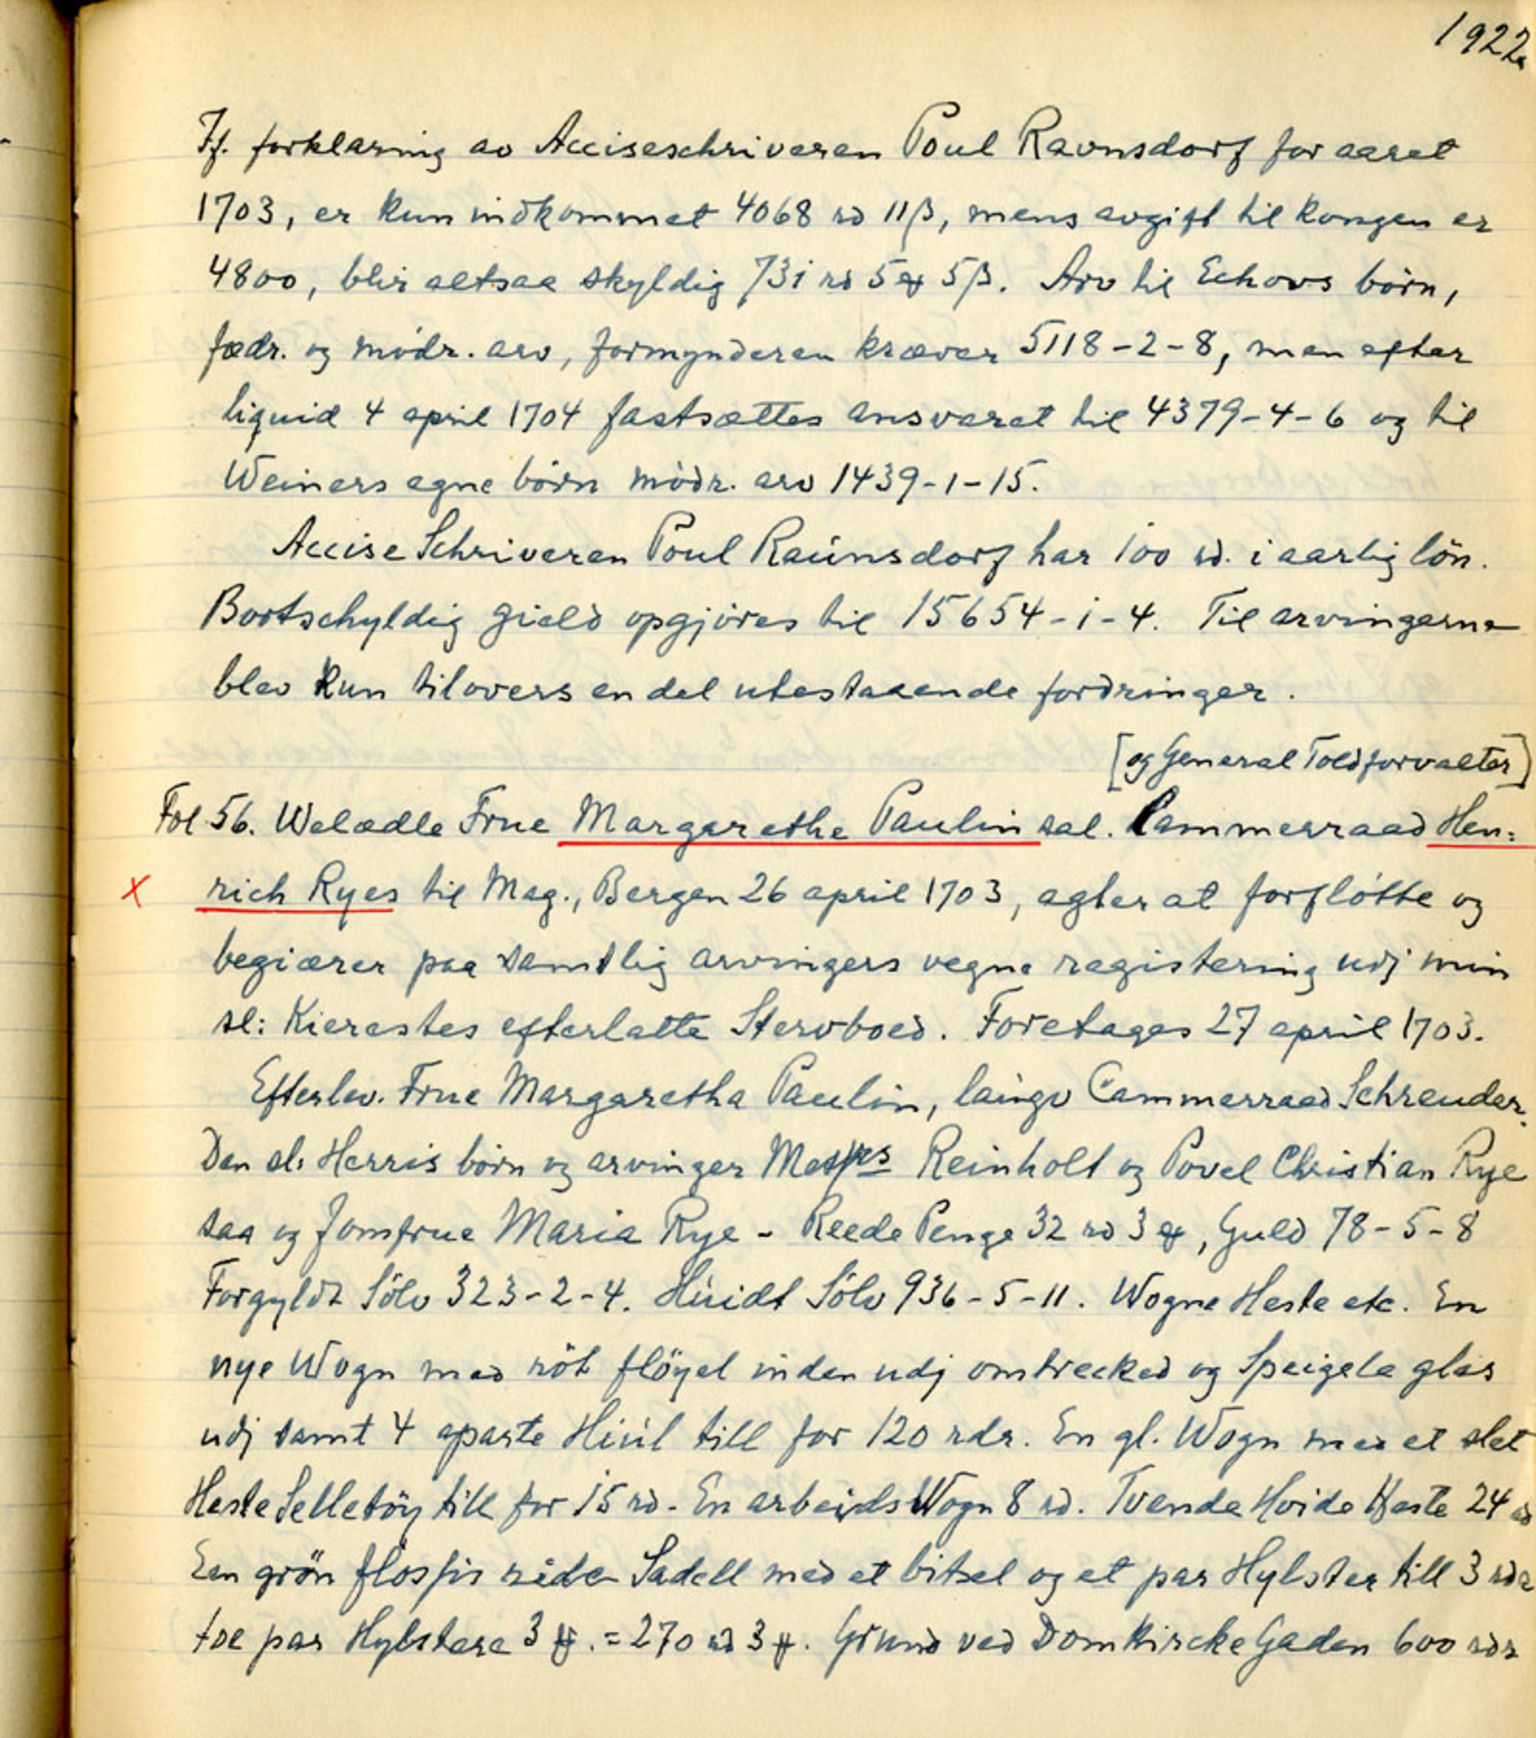 1922a
If. forklaring av Acciseschriveren Poul Ravnsdorf for aaret
1703, er kun indkommet 4068 rd 11β, mens avgift til kongen er
4800, blir altsaa skyldig 731 rd 5 ꝣ 5β. Arv til Echovs børn,
fædr. og mödr. arv, formynderen kræver 5118-2-8, men efter
liquid 4 april 1704 fastsættes ansvaret til 4379-4-6 og til
Weiners egne børn mödr. arv 1439-1-15.
Accise Schriveren Poul Raúnsdorf har 100 rd. i aarlig lön.
Bortschyldig gield opgjöres til 15654-1-4. Til arvingerne
blev kun tilovers en del utestaaende fordringer.
[og General Toldforvalter]
Fol 56. Welædle Frue Margarethe Paulin sal. Cammerraad Hen=
x rich Ryes til Mag., Bergen 26 april 1703, agter at forflötte og
begiærer paa samtlig arvingers vegne registering udj min
sl: Kierestes efterlatte Stervboed. Foretages 27 april 1703.
Efterlev. Frue Margaretha Paulin, laúgv Cammerraad Schreuder.
Den sl: Herris børn og arvinger Reinholt og Povel Christian Rye
saa og Jomfrue Maria Rye - Reede Penge 32 rd 3 ꝣ, Guld 78-5-8
Forgyldt Sölv 323-2-4. Húidt Sölv 936-5-11. Wogne Heste etc. En
nye Wogn med röt flöyel inden udj omtrecked og Speigele glas
udj samt 4 aparte Hiúl till for 120 rdr. En gl. Wogn med et slet
Heste Selletöy till for 15 rd. En arbeids Wogn 8 rd. Tvende Hvide Heste 24 rd
Een grön ride Sadell med et bitsel og et par Hylster till 3 rdr
toe par Hylstere 3 ꝣ. = 270 rd 3 ꝣ. Grund ved Domkircke Gaden 600 rdr